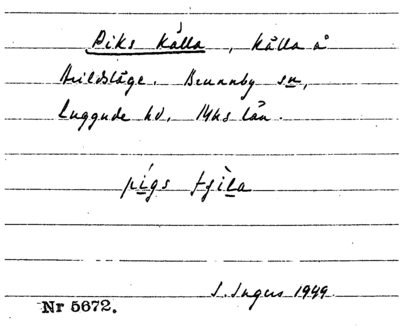 Piks källa, källa å
Arildsläge. Brunnby sn,
Luggude hd. Mhs län.
pigs tjìla
I. Ingers 1949
Nr 5672.